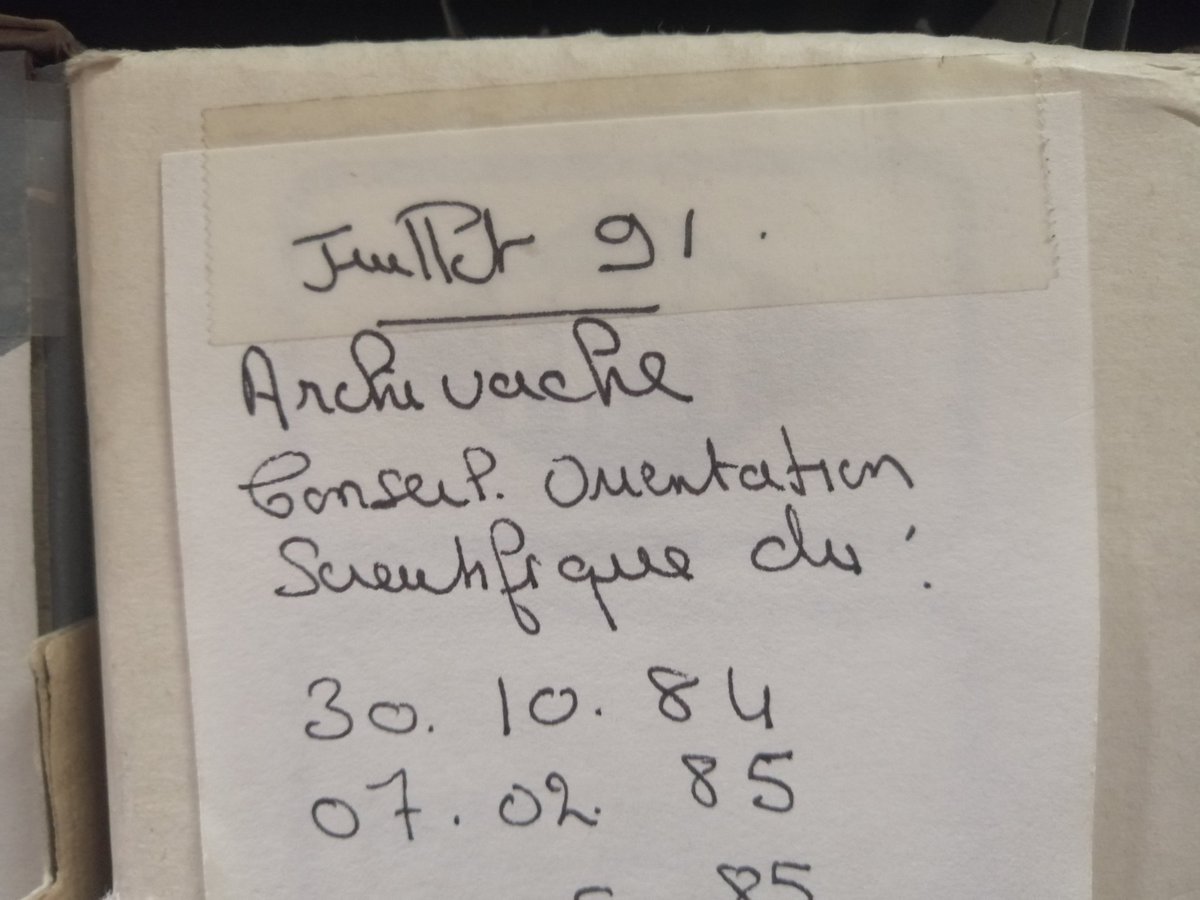 Juillet 91.
Archivache
Conseil. Orientation
Scientifique du :
30. 10. 84
07. 02. 85
85